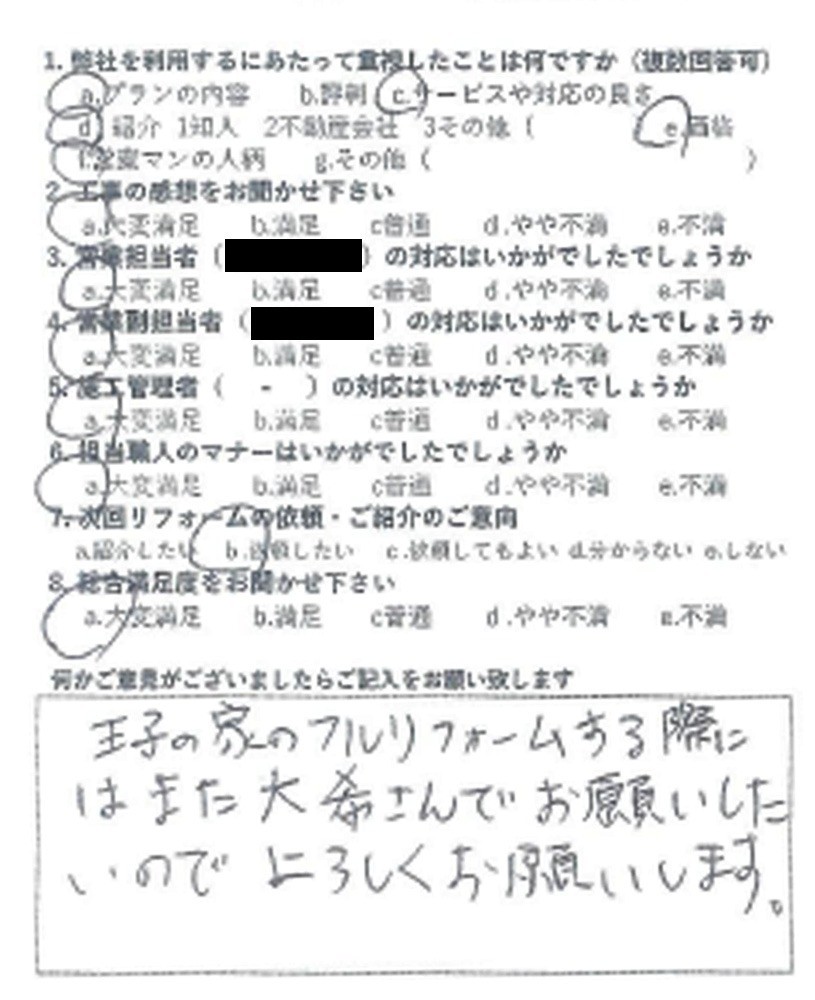 1. 弊社を利用するにあたって重視したことは何ですか（複数回答可）
a.プランの内容 b.評判 c.サービスや対応の良さ
d 紹介 1知人 2不動産会社 3その他（ e.価格
f.営業マンの人柄 g.その他（ ）
2. 工事の感想をお聞かせ下さい
a.大変満足 b.満足 c普通 d.やや不満 e.不満
3. 営業担当者（ ）の対応はいかがでしたでしょうか
a.大変満足 b.満足 c普通 d.やや不満 e.不満
4. 営業副担当者（ ）の対応はいかがでしたでしょうか
a.大変満足 b.満足 c普通 d.やや不満 e.不満
5. 施工管理者（ - ）の対応はいかがでしたでしょうか
a.大変満足 b.満足 c普通 d.やや不満 e.不満
6. 担当職人のマナーはいかがでしたでしょうか
a.大変満足 b.満足 c普通 d.やや不満 e.不満
7. 次回リフォームの依頼・ご紹介のご意向
a.紹介したい b.依頼したい c.依頼してもよい d.分からない e.しない
8. 総合満足度をお聞かせ下さい
a.大変満足 b.満足 c普通 d.やや不満 e.不満
何かご意見がございましたらご記入をお願い致します
王子の家のフルリフォームする際に
はまた大希さんでお願いした
いのでよろしくお願いします。